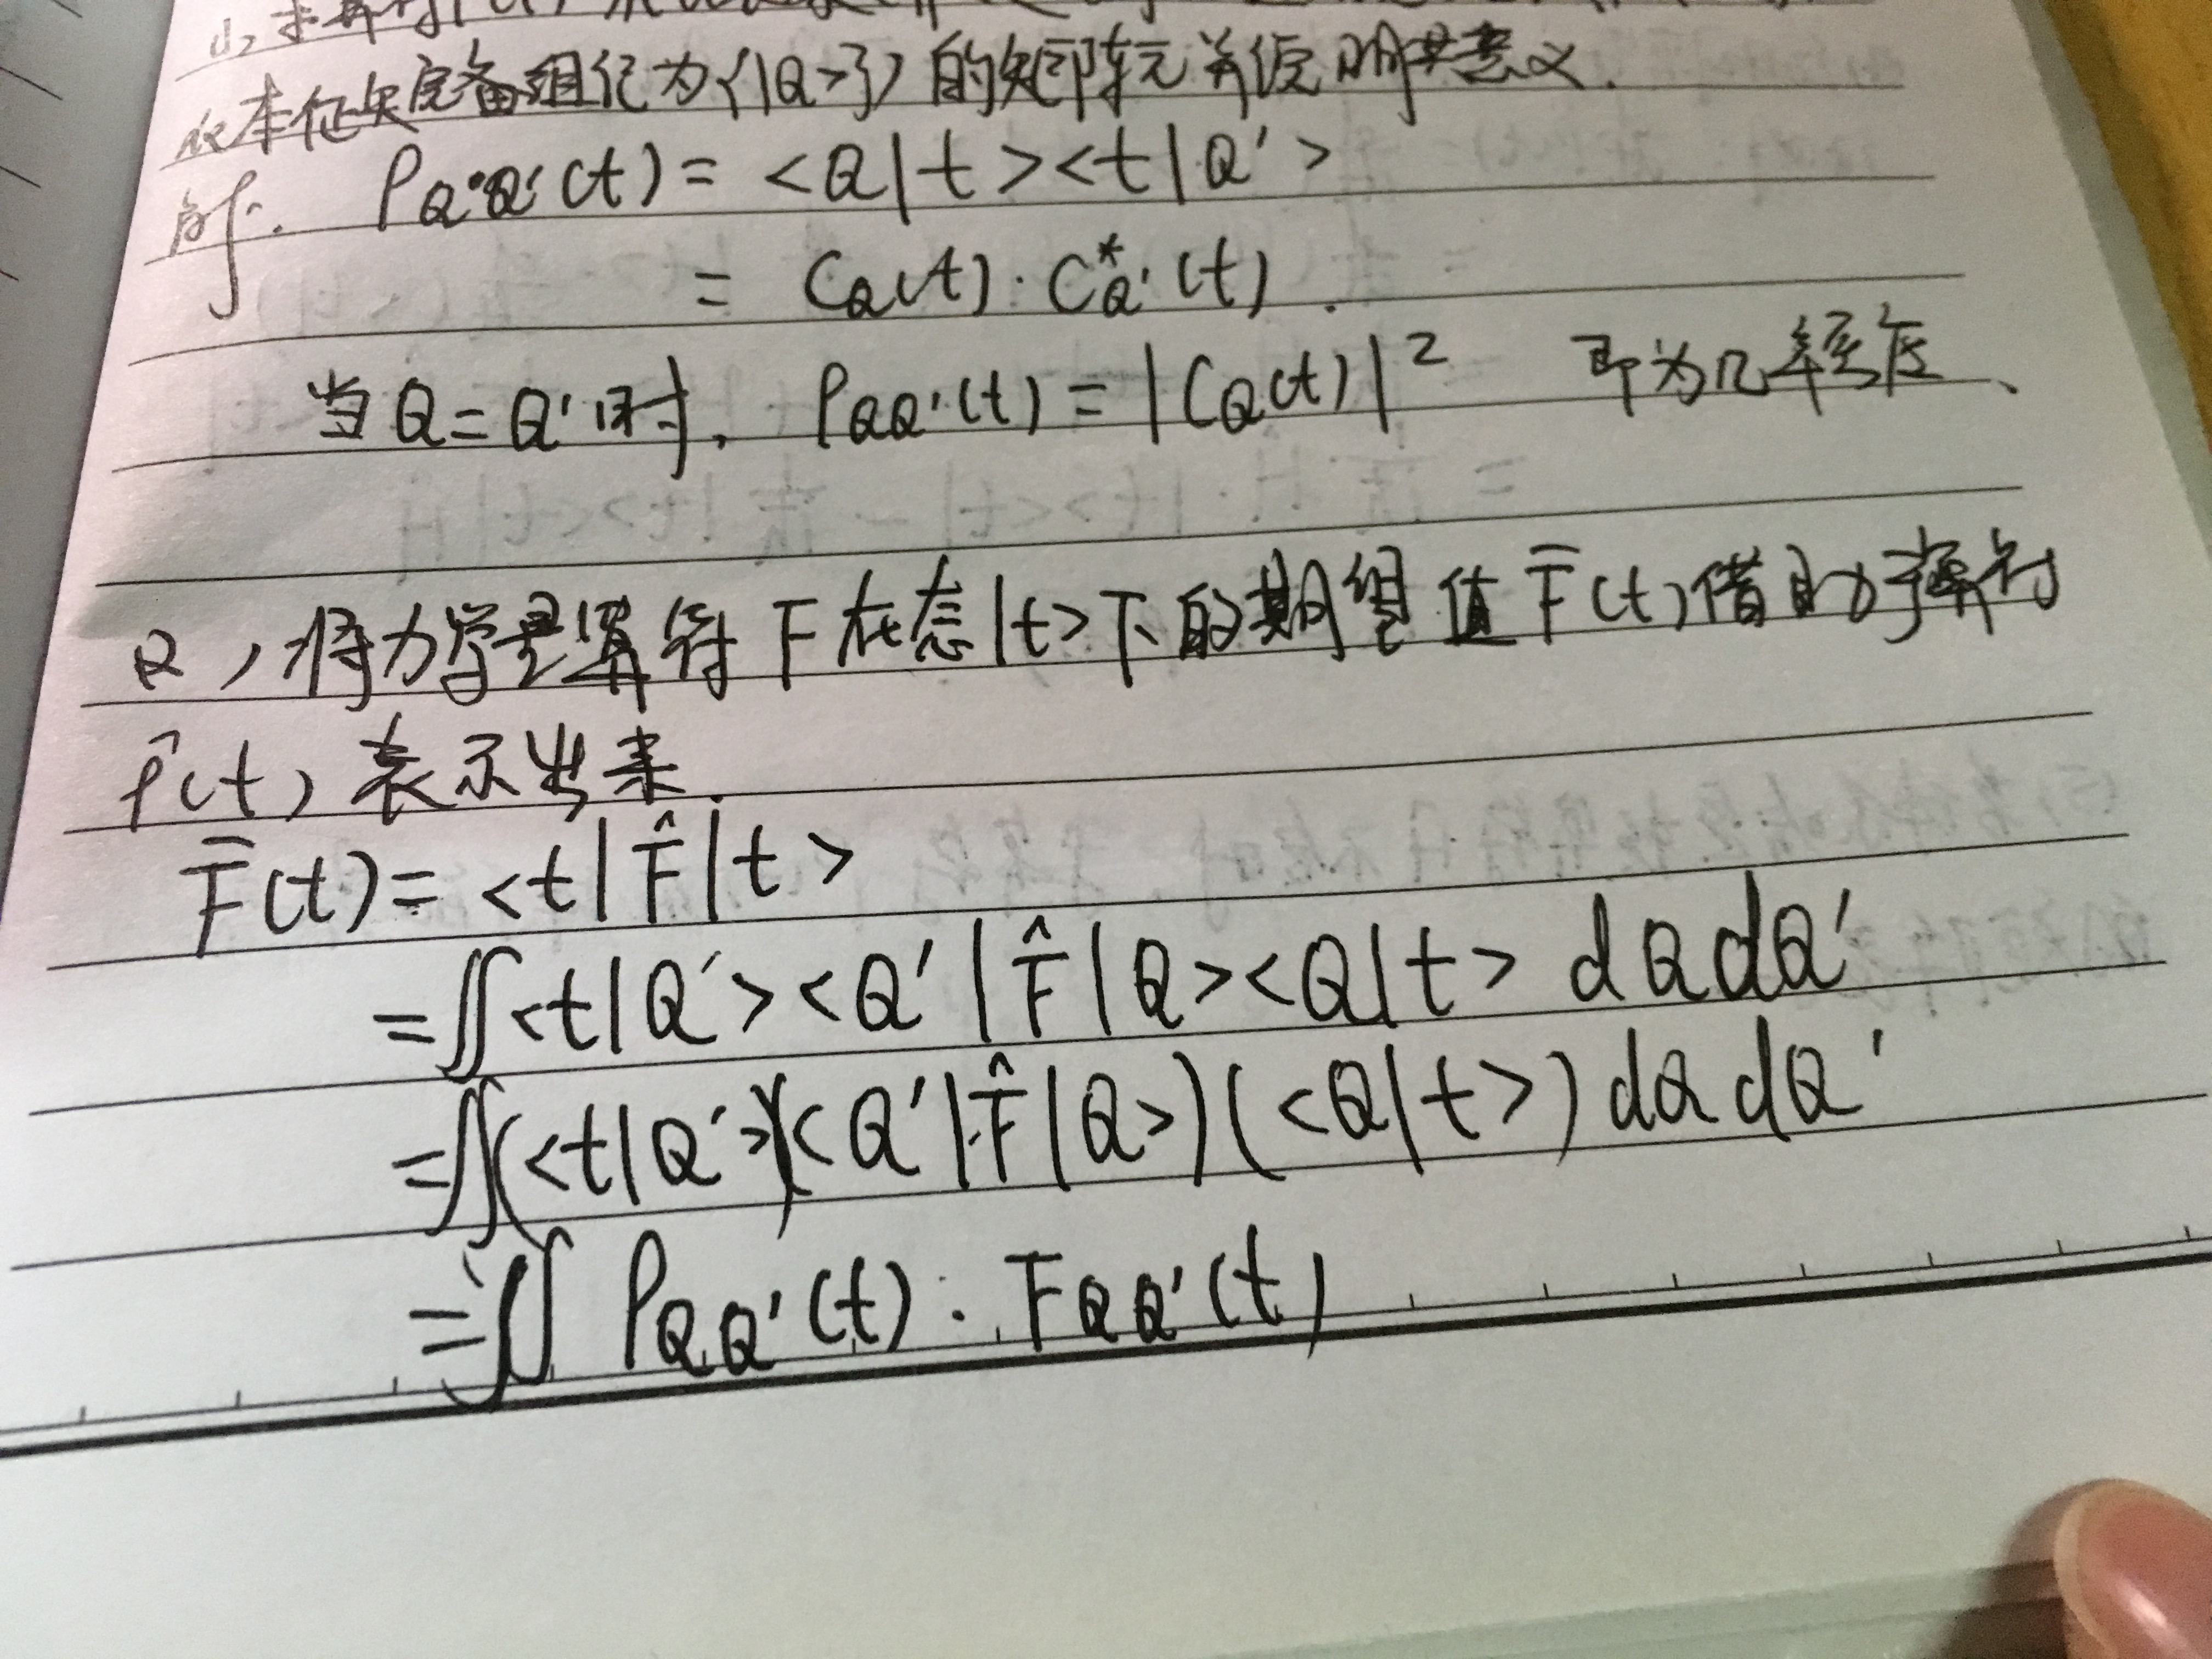 在本征矢完备组记为{|Q>}）的矩阵元并说明其意义.
解: ρQQ'(t) = <Q|t><t|Q'>
= CQ(t)·C*Q'(t).
当Q=Q'时, ρQQ'(t) = |CQ(t)|² 即为几率密度、
2) 将力学量算符F在态|t>下的期望值F̄(t)借助算符
ρ̂(t)表示出来.
F̄(t) = <t|F̂|t>
=∬<t|Q'><Q'|F̂|Q><Q|t> dQdQ'
=∬(<t|Q'>)(<Q'|F̂|Q>)(<Q|t>)dQdQ'
=∬ ρQQ'(t)·FQQ'(t)